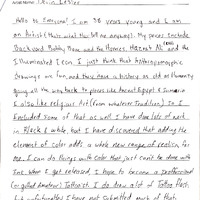 Devin Lester
Hello to Everyone! I am 38 years young and I am
an Artist (that's what they tell me anyway). My pieces include
Backyard Bobby Dawg and the Homies, Hazard Ali and the
Illuminated I con. I just think that Anthropomorphic
Drawings are fun and they have a history as old as Humanity
going all the way back to places like Ancient Egypt & Sumaria
I also like religious Art (from whatever Tradition). So I
Enclosed some of that as well. I have done lots of work
in Black & White, but I have discovered that adding the
element of color adds a whole new range of realism for
me. I can do things with color that just can't be done with
Ink. When I get released, I hope to become a professional
(or gifted Amateur) Tattooist. I do draw alot of Tattoo Flash,
but unfortunately I have not submitted much of that.